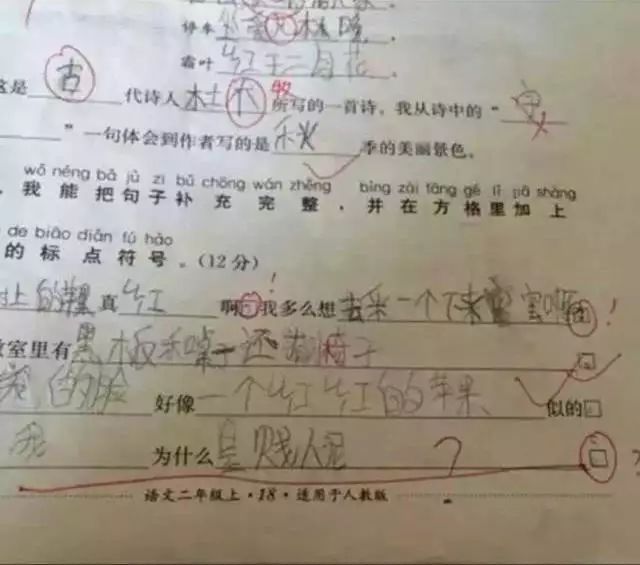 停车 林晚。
霜叶红于二月花。
这是古代诗人杜 牧所写的一首诗。我从诗中的“
”一句体会到作者写的是秋季的美丽景色。
wǒ néng bǎ jù zi bǔ chōng wán zhěng bìng zài fāng gé lǐ jiā shàng
、我能把句子补充完整,并在方格里加上
de biāo diǎn fú hào
的标点符号。(12分)
上的苹果真红啊!我多么想去采一个下来 !
教室里有黑板和桌子还有椅子□
我的脸好像一个红红的苹果似的□
我为什么是贱人呢?□?
语文二年级上·18·适用于人教版